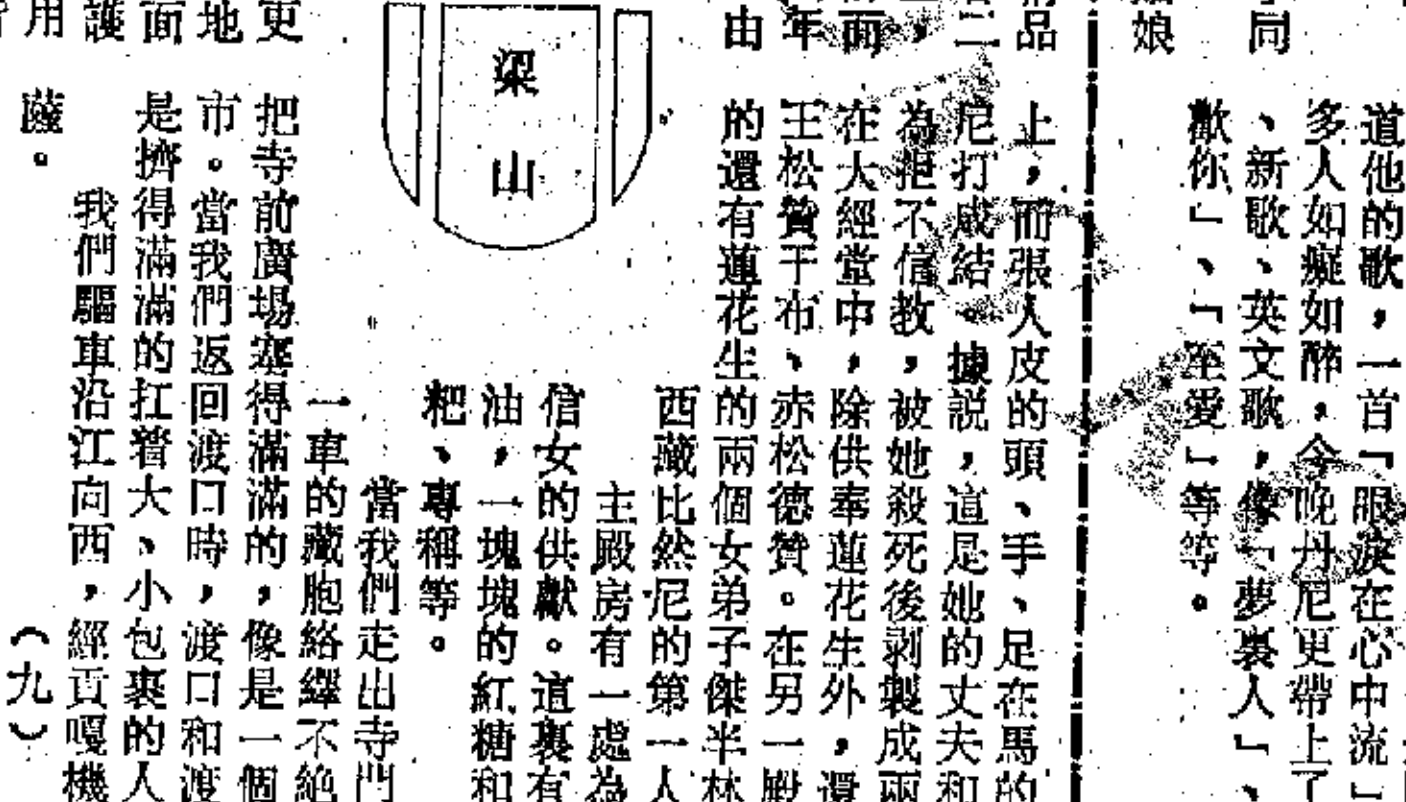 道他的歌,一首「眼淚在心中流」
多人如癡如醉,今晚丹尼更帶上了
同、新歌、英文歌,像「夢裏人」、
歡你」、「至愛」等等。
娘
品上,而張人皮的頭、手、足在馬的
二尼打成結。據説,這是她的丈夫和
為拒不信教,被她殺死後剥製成兩
面在大經堂中,除供奉蓮花生外,還
年王松贊干布、赤松德贊。在另一殿
由的還有蓮花生的兩個女弟子傑半林
西藏比然尼的第一人
主殿房有一處為
信女的供獻。道裏有
油,一塊塊的紅糖和
粑、專稱等。
當我們走出寺門
一車的藏胞絡繹不絶
梁山
更把寺前廣場塞得滿滿的,像是一個
地市。當我們返回渡口時,渡口和渡
面是擠得滿滿的扛着大、小包裹的人
護我們驅車沿江向西,經貢嘎機
用薩。(九)